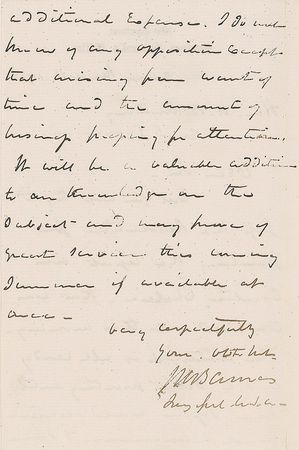 additional expense. I do not
know of any opposition except
that arising from want of
time and the amount of
business pressing for attention.
It will be a valuable addition
to our knowledge on the
subject and may prove of
great service this coming
Summer if available at
once -
Very respectfully
Your obt svt